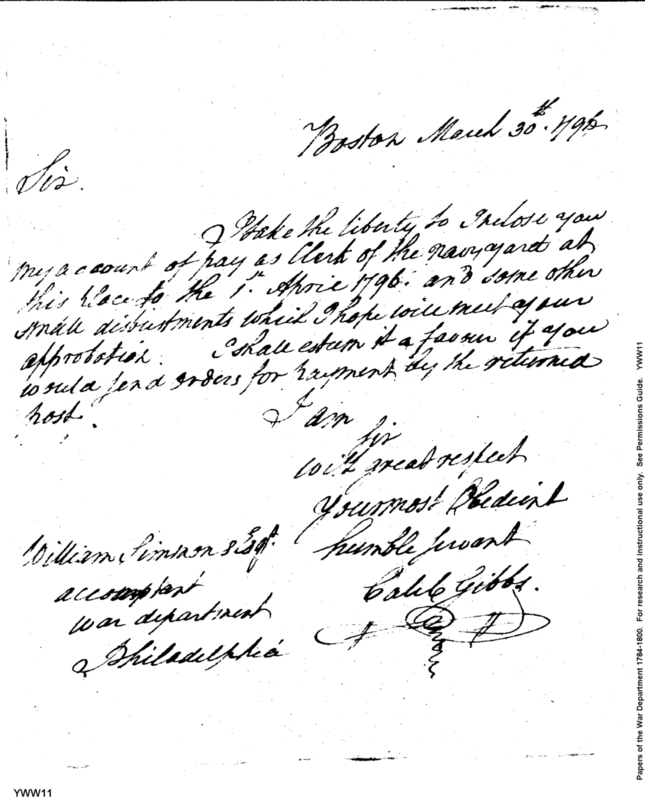 Boston March 30th. 1796
Sir.
I take the liberty to Inclose you
my account of pay as Clerk of the navy yard at
this place to the 1st. April 1796. and some other
small disbursments which I hope will meet your
approbation. I shall esteem it a favour if you
would send orders for payment by the returned
post.
I am
Sir
with great respect
Your most Obedient
humble servant
Caleb Gibbs.
William Simmons Esqr.
accomptant
war department
Philadelphia
Papers of the War Department 1784-1800. For research and instructional use only. See Permissions Guide. YWW11
YWW11